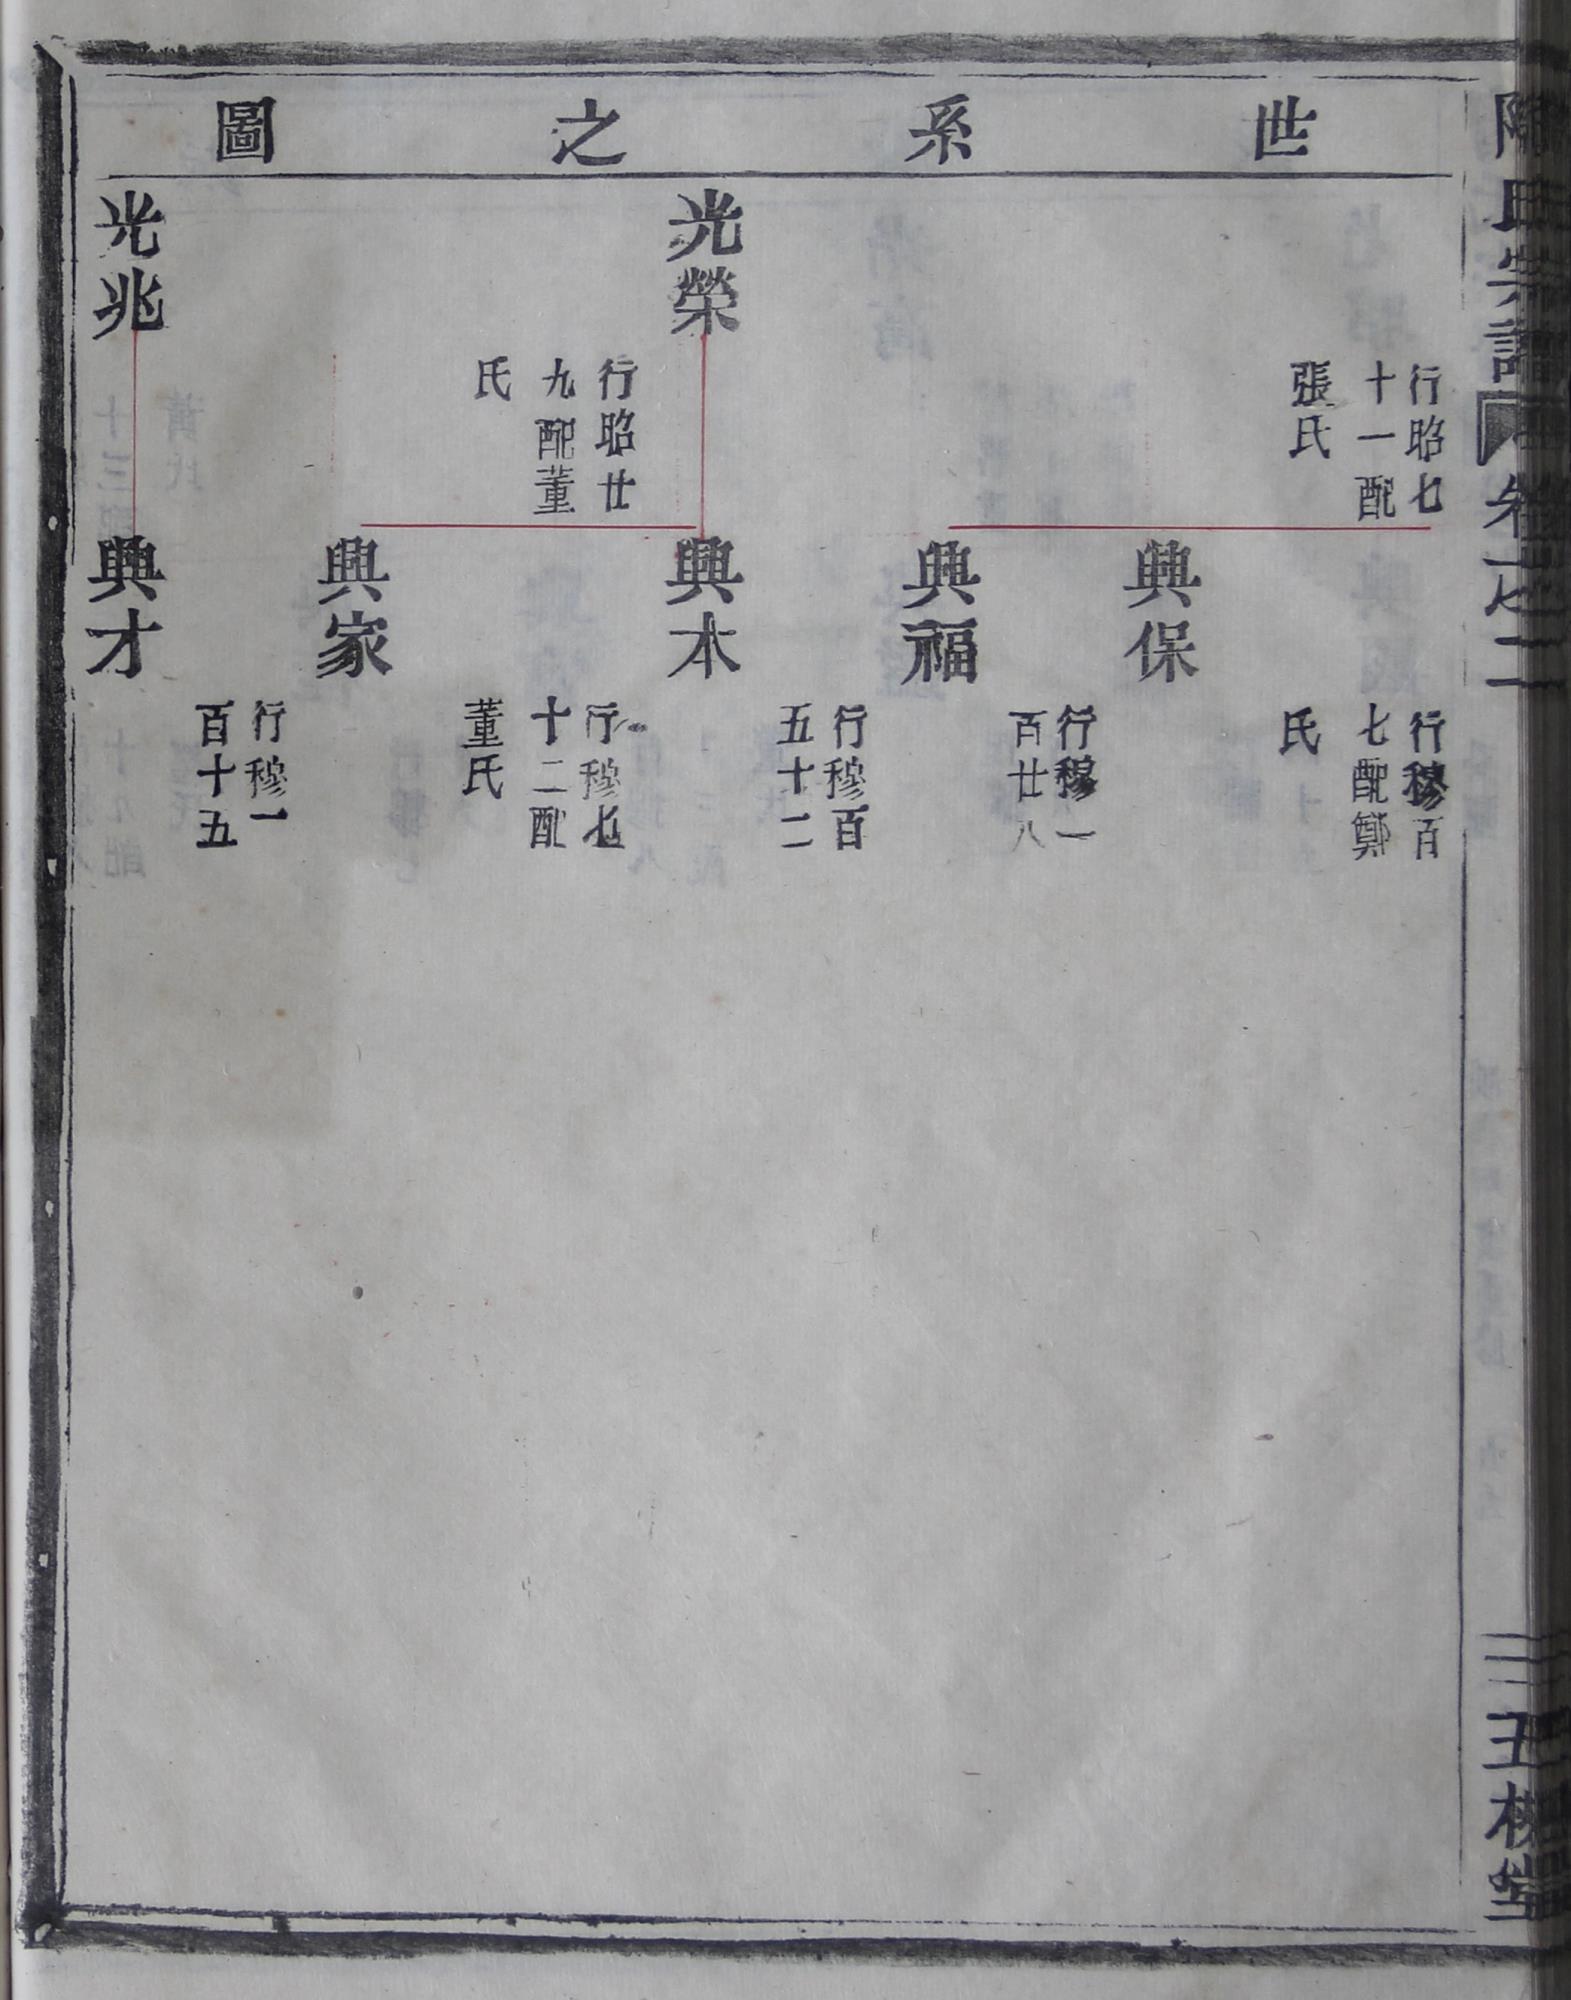 世系之圖
行昭七
十一配
張氏
光榮
行昭廿
九配董
氏
光兆
行穆百
七配鄭
氏
興保
行穆一
百廿八
興福
行穆百
五十二
興本
行穆七
十二配
董氏
興家
行穆一
百十五
興才
氏宗譜
卷之二
五桂堂